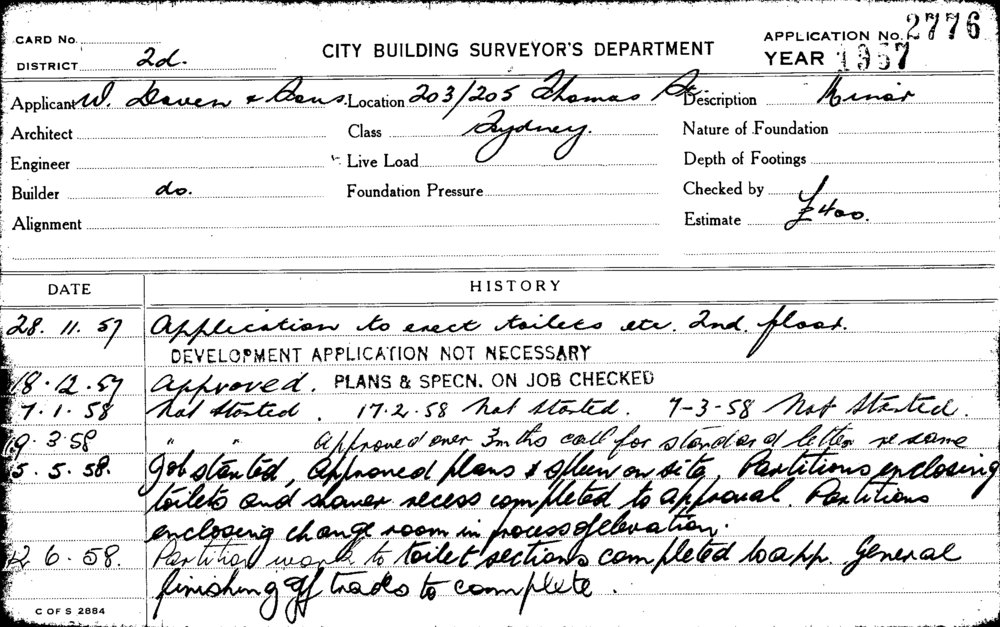 CARD No.
DISTRICT 2d.
CITY BUILDING SURVEYOR'S DEPARTMENT
APPLICATION No. 2776
YEAR 1957
Applicant W. Daven & Sons. Location 203/205 Thomas St. Description Minor
Architect Class Sydney. Nature of Foundation
Engineer Live Load Depth of Footings
Builder do. Foundation Pressure Checked by
Alignment Estimate £400.
DATE HISTORY
28. 11. 57 Application to erect toilets etc. 2nd. floor.
DEVELOPMENT APPLICATION NOT NECESSARY
18. 12. 57 Approved. PLANS & SPECN. ON JOB CHECKED
7. 1. 58 Not started. 17.2.58 Not started. 7-3-58 Not Started.
19. 3. 58 " " Approved over 3 mths call for standard letter re same
5. 5. 58. Job started, approved plans & on site, Partitions enclosing
toilets and shower recess completed to approval. Partitions
enclosing change room in process of
6. 58. Partition work to toilet sections completed to app. General
finishing off trades to complete.
C OF S 2884